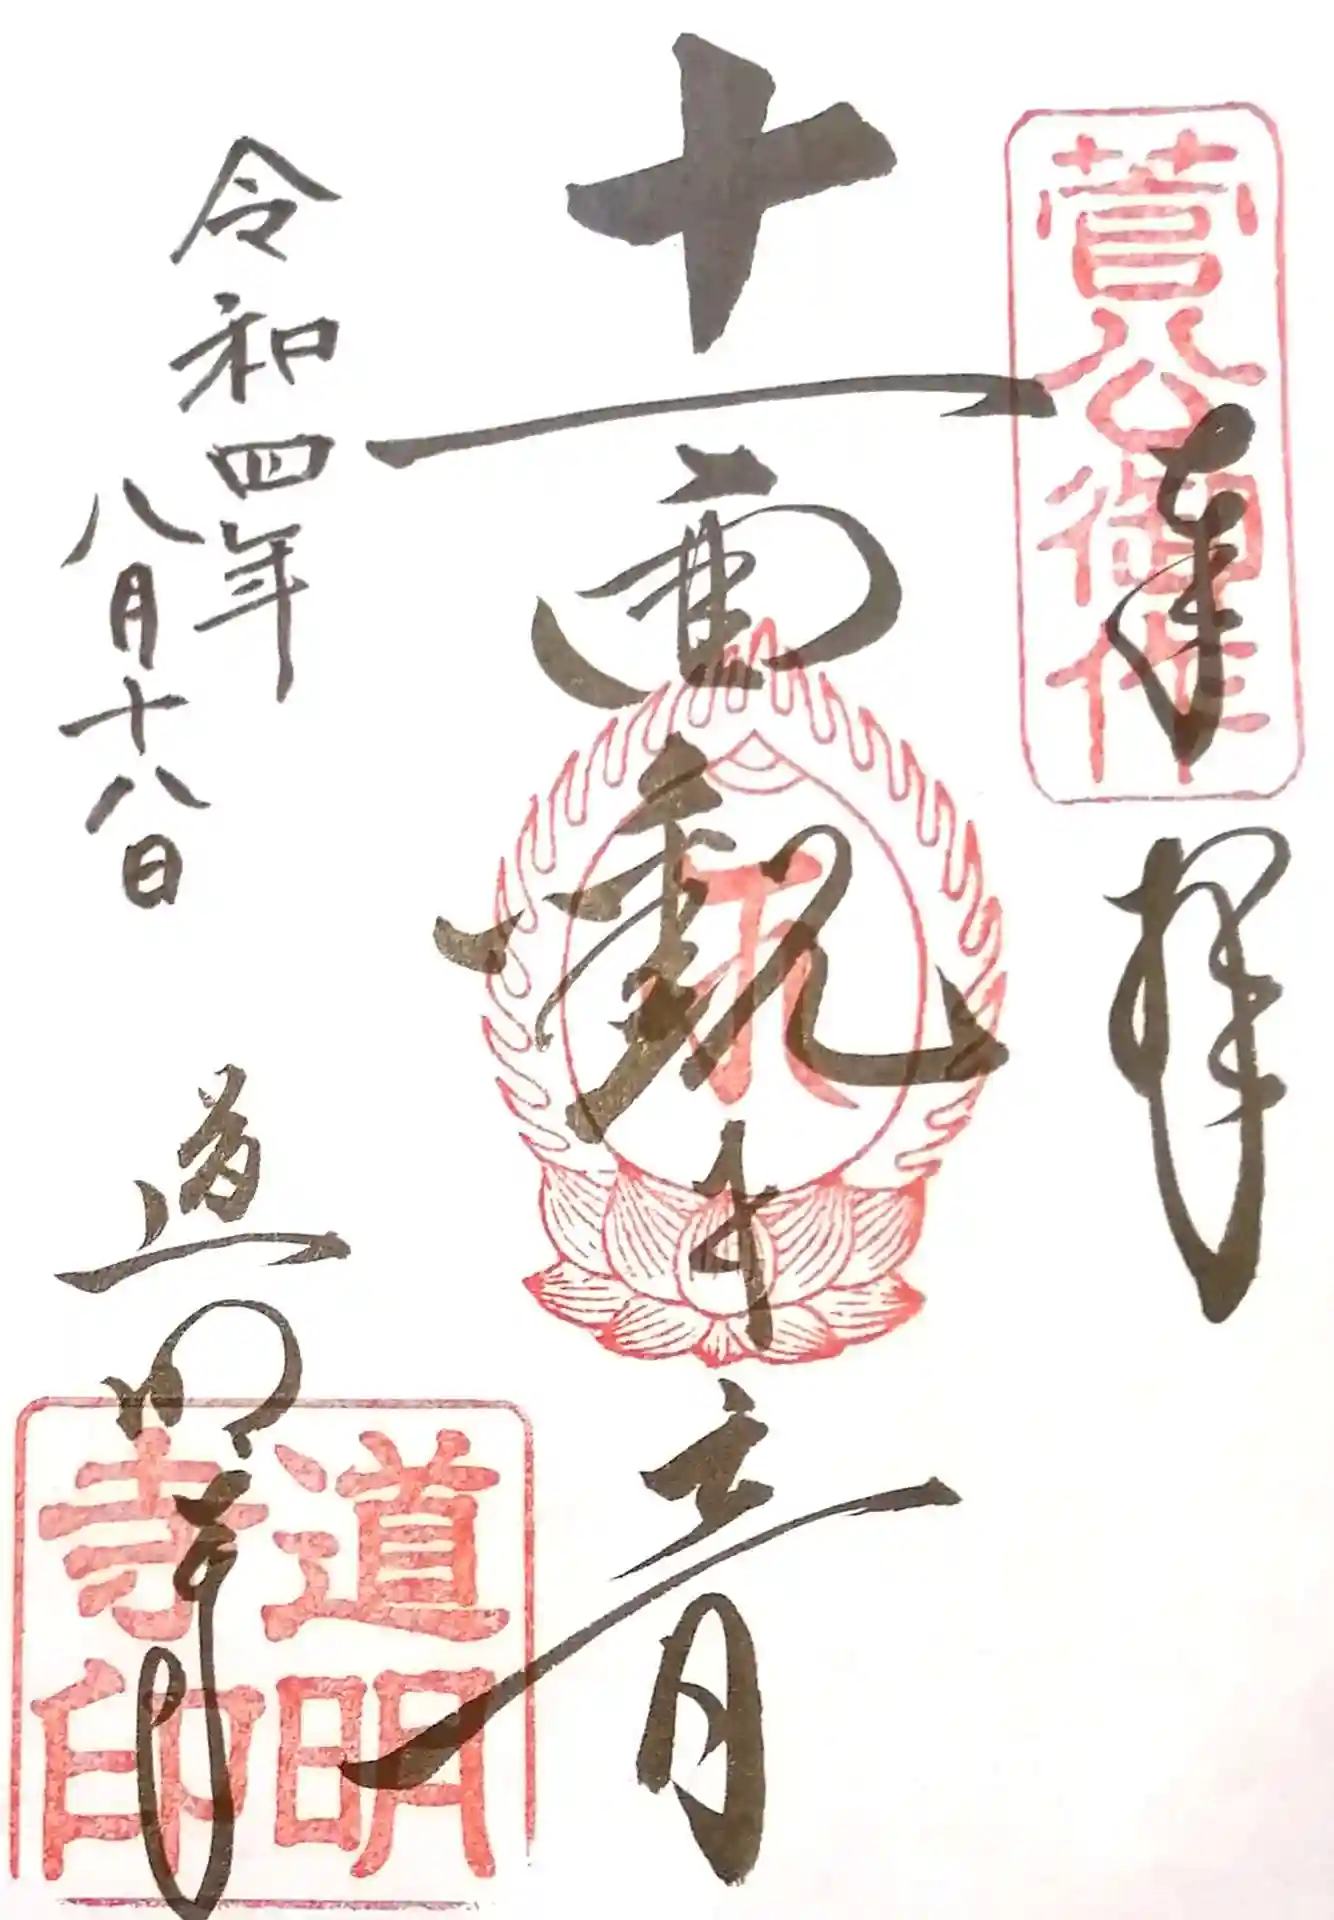 菅公御作
奉拝
十一面観世音
令和四年
八月十八日
道明寺
道明
寺印